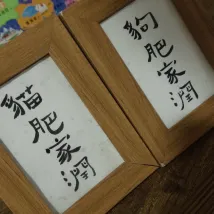 貓肥家潤
狗肥家潤